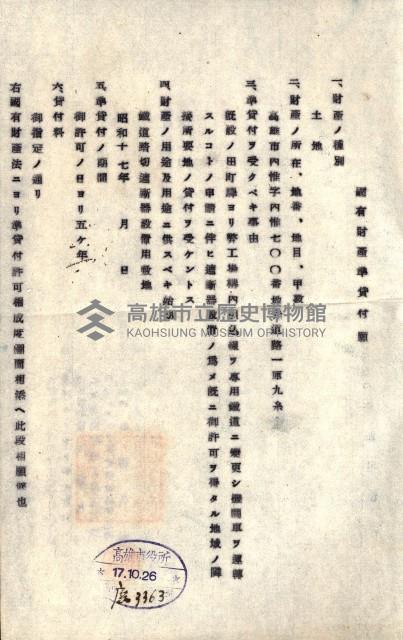 國有財產準貸付願
一、財產ノ種別
土地
二、財產ノ所在、地番、地目、甲數
高雄市內惟字內惟七〇〇番地 道路 一厘九糸
三、準貸付ヲ受クベキ事由
既設ノ田町驛ヨリ弊工場構內 線ヲ專用鐵道ニ變更シ機關車ヲ運轉
スルコトノ申請ニ伴ヒ遮斷器設備ノ爲メ既ニ御許可ヲ得タル地域ノ隣
接所要地ノ貸付ヲ受ケントス
四、財產ノ用途及用途ニ供スベキ始期
鐵道踏切遮斷器設備用敷地
昭和十七年 月 日
五、準貸付ノ期間
御許可ノ日ヨリ五ケ年
六、貸付料
御指定ノ通リ
右國有財產法ニヨリ準貸付許可相成度圖面相添ヘ此段相願候也
高雄市立歷史博物館
KAOHSIUNG MUSEUM OF HISTORY
高雄市役所
17.10.26
3363